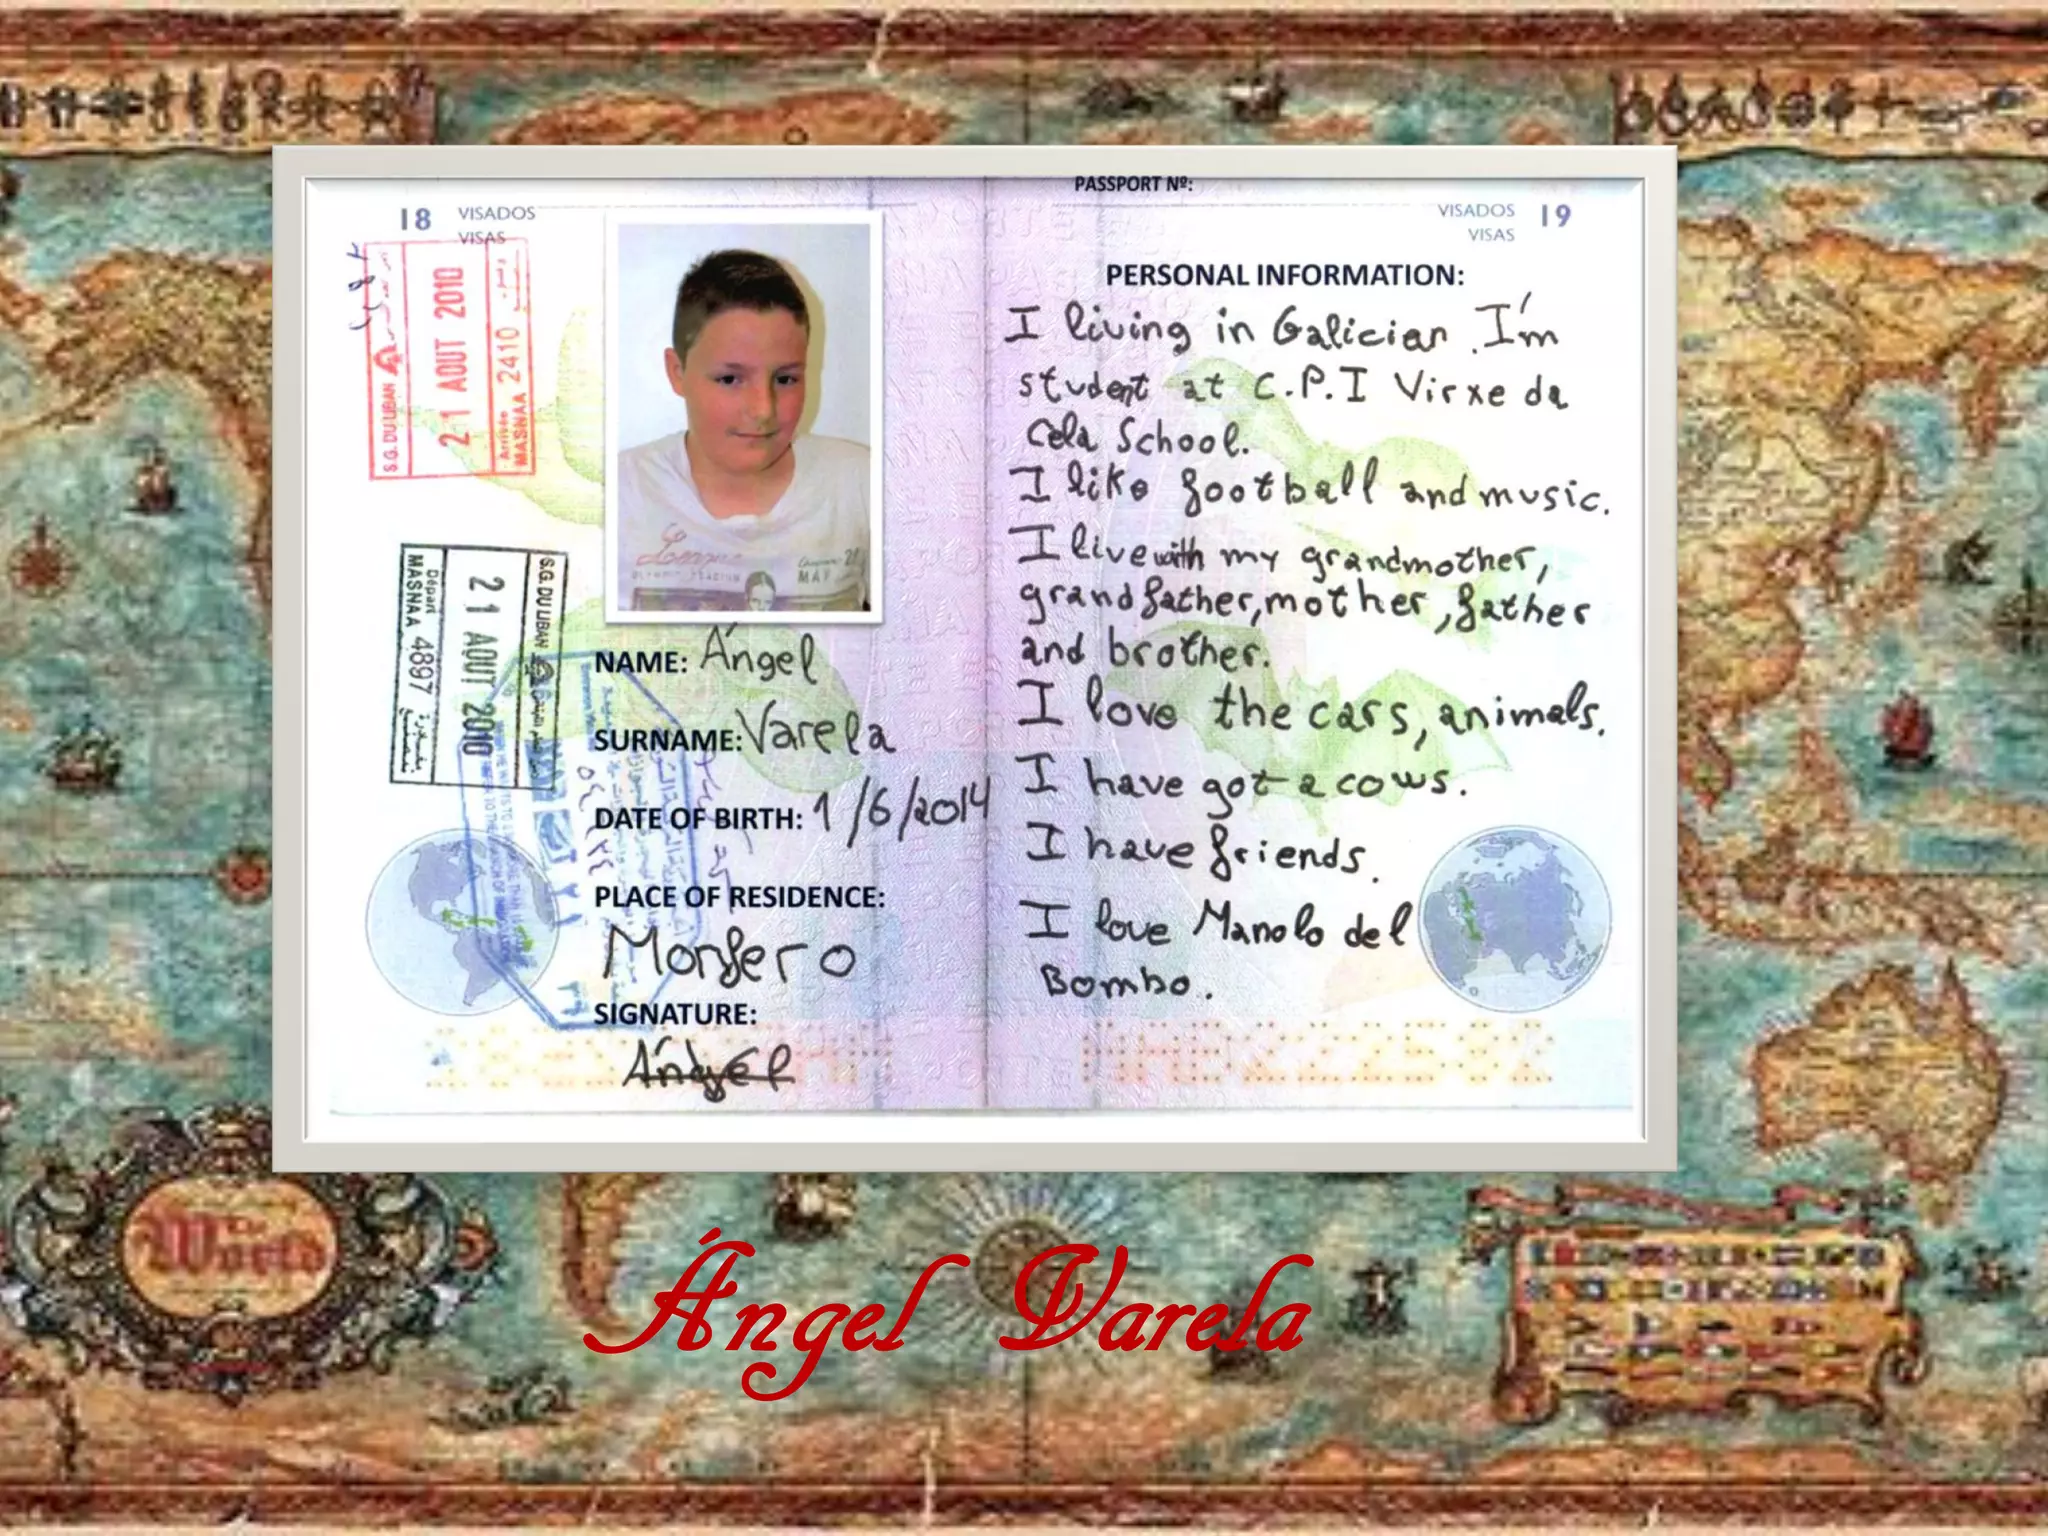 PASSPORT Nº:
18 VISADOS
VISAS
VISADOS 19
VISAS
S.G. DU LIBAN
21 AOUT 2010
Arrivée
MASNAA 2410
S.G. DU LIBAN
21 AOUT 2010
Départ
MASNAA 4897
NAME: Ángel
SURNAME: Varela
DATE OF BIRTH: 1/6/2014
PLACE OF RESIDENCE:
Monfero
SIGNATURE:
Ángel
PERSONAL INFORMATION:
I living in Galician. I'm
student at C.P.I Virxe da
Cela School.
I like football and music.
I live with my grandmother,
grandfather, mother, father
and brother.
I love the cars, animals.
I have got a cows.
I have friends.
I love Manolo del
Bombo.
The
World
Ángel Varela